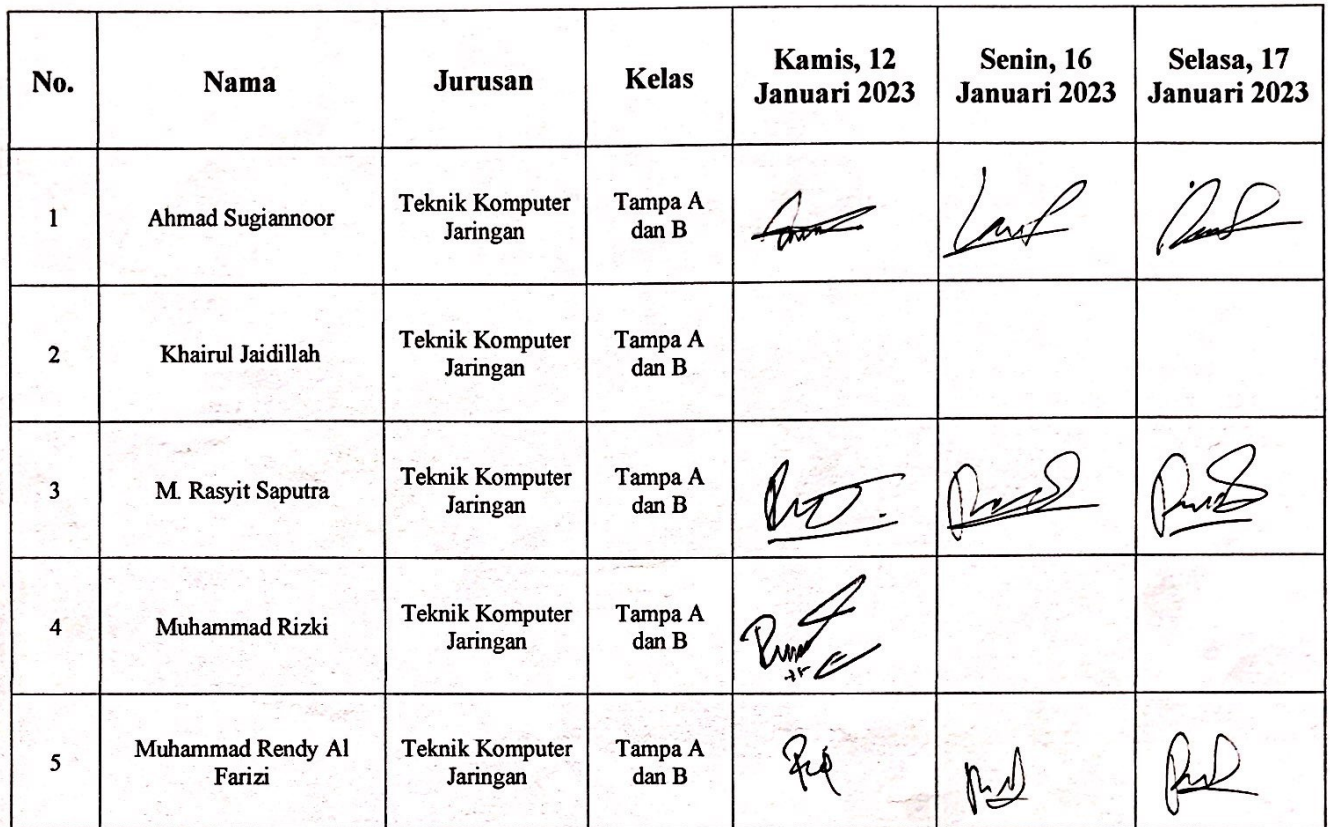 No.
Nama
Jurusan
Kelas
Kamis, 12
Januari 2023
Senin, 16
Januari 2023
Selasa, 17
Januari 2023
1
Ahmad Sugiannoor
Teknik Komputer
Jaringan
Tampa A
dan B
2
Khairul Jaidillah
Teknik Komputer
Jaringan
Tampa A
dan B
3
M. Rasyit Saputra
Teknik Komputer
Jaringan
Tampa A
dan B
4
Muhammad Rizki
Teknik Komputer
Jaringan
Tampa A
dan B
5
Muhammad Rendy Al
Farizi
Teknik Komputer
Jaringan
Tampa A
dan B